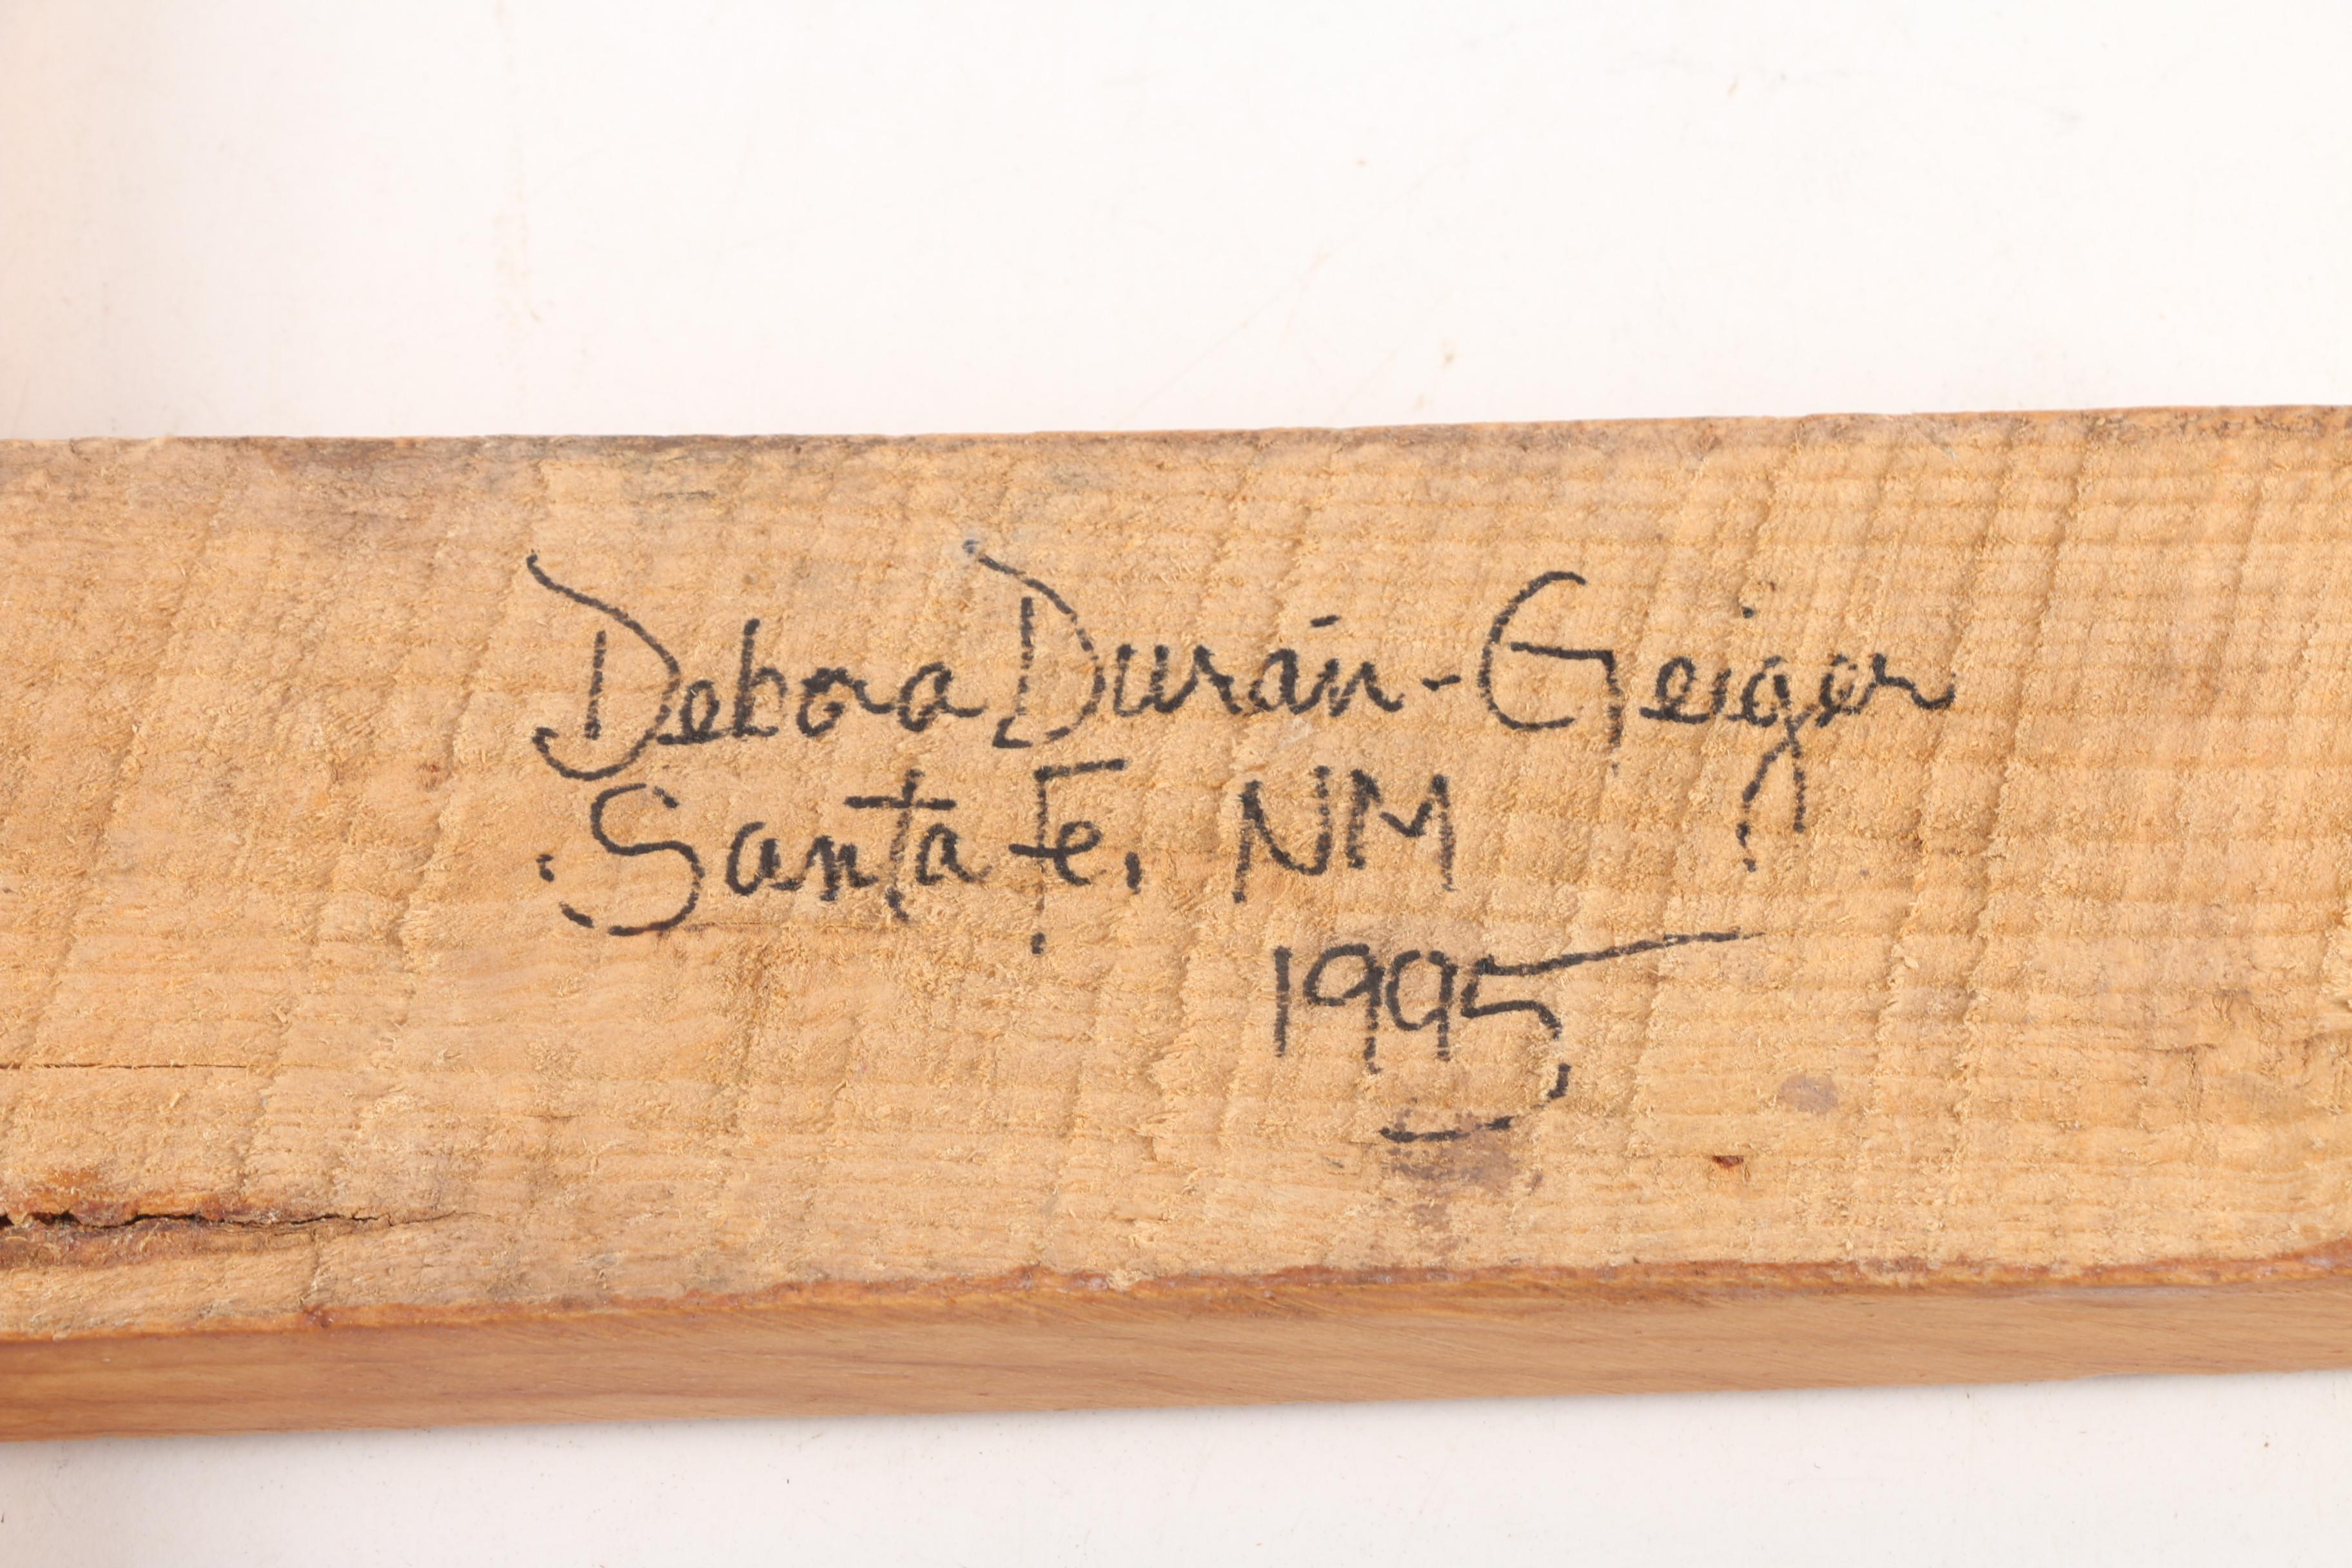 Debora Durán-Geiger
Santa Fe, NM
1995